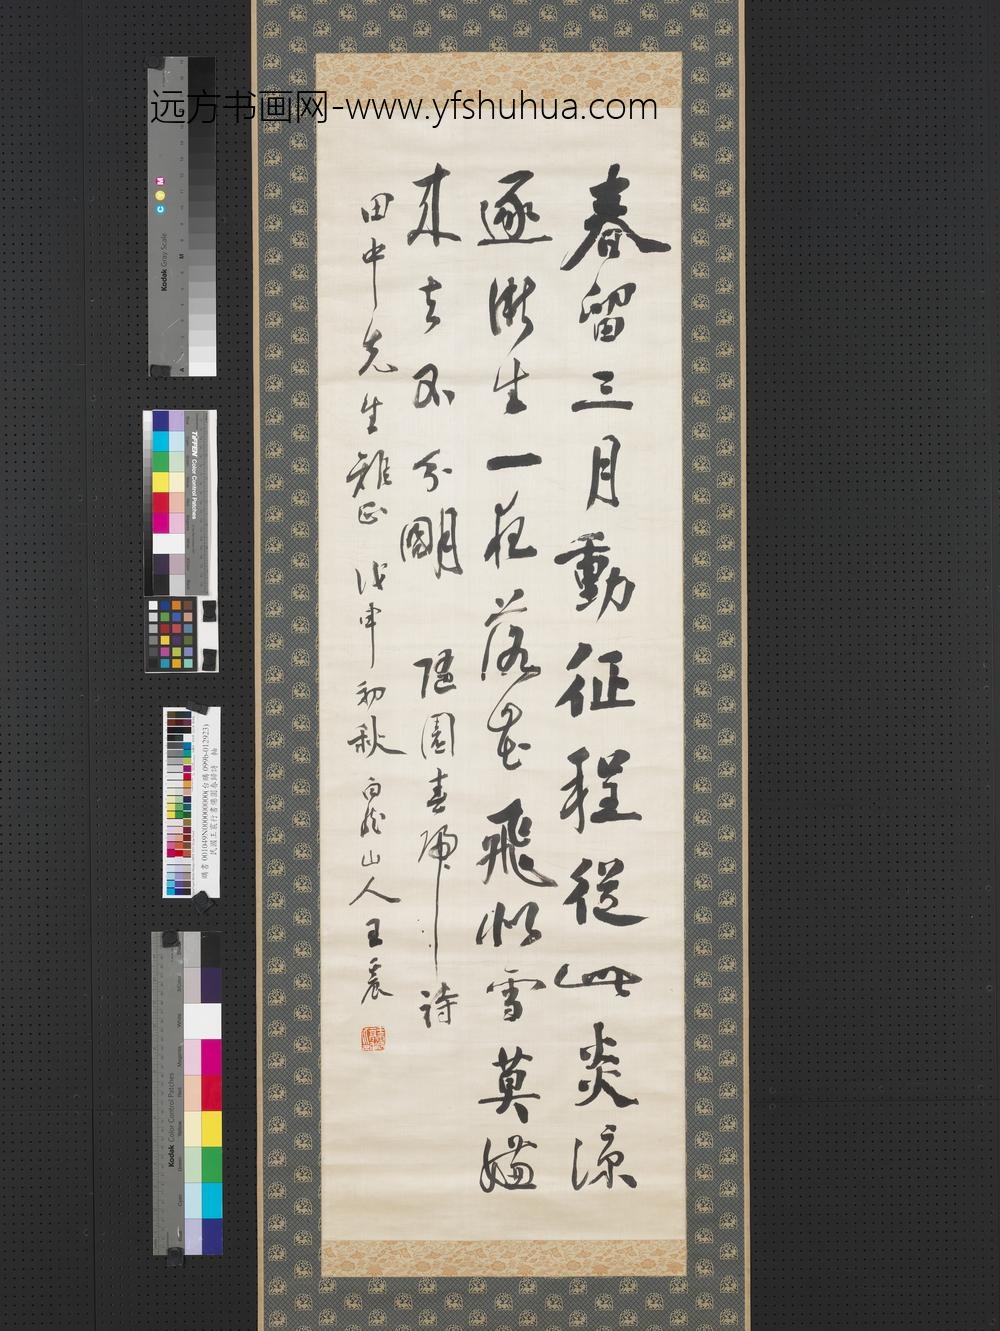 远方书画网-www.yfshuhua.com
春留三月動征程從此炎涼
逐漸生一夜落花飛似雪莫嫌
來去不分明 隨園春歸詩
田中先生雅正 戊申初秋 白龍山人王震
Kodak Gray Scale
C Y M
TIFFEN Color Control Patches
民國王震行書隨園春歸詩 軸
Kodak Color Control Patches